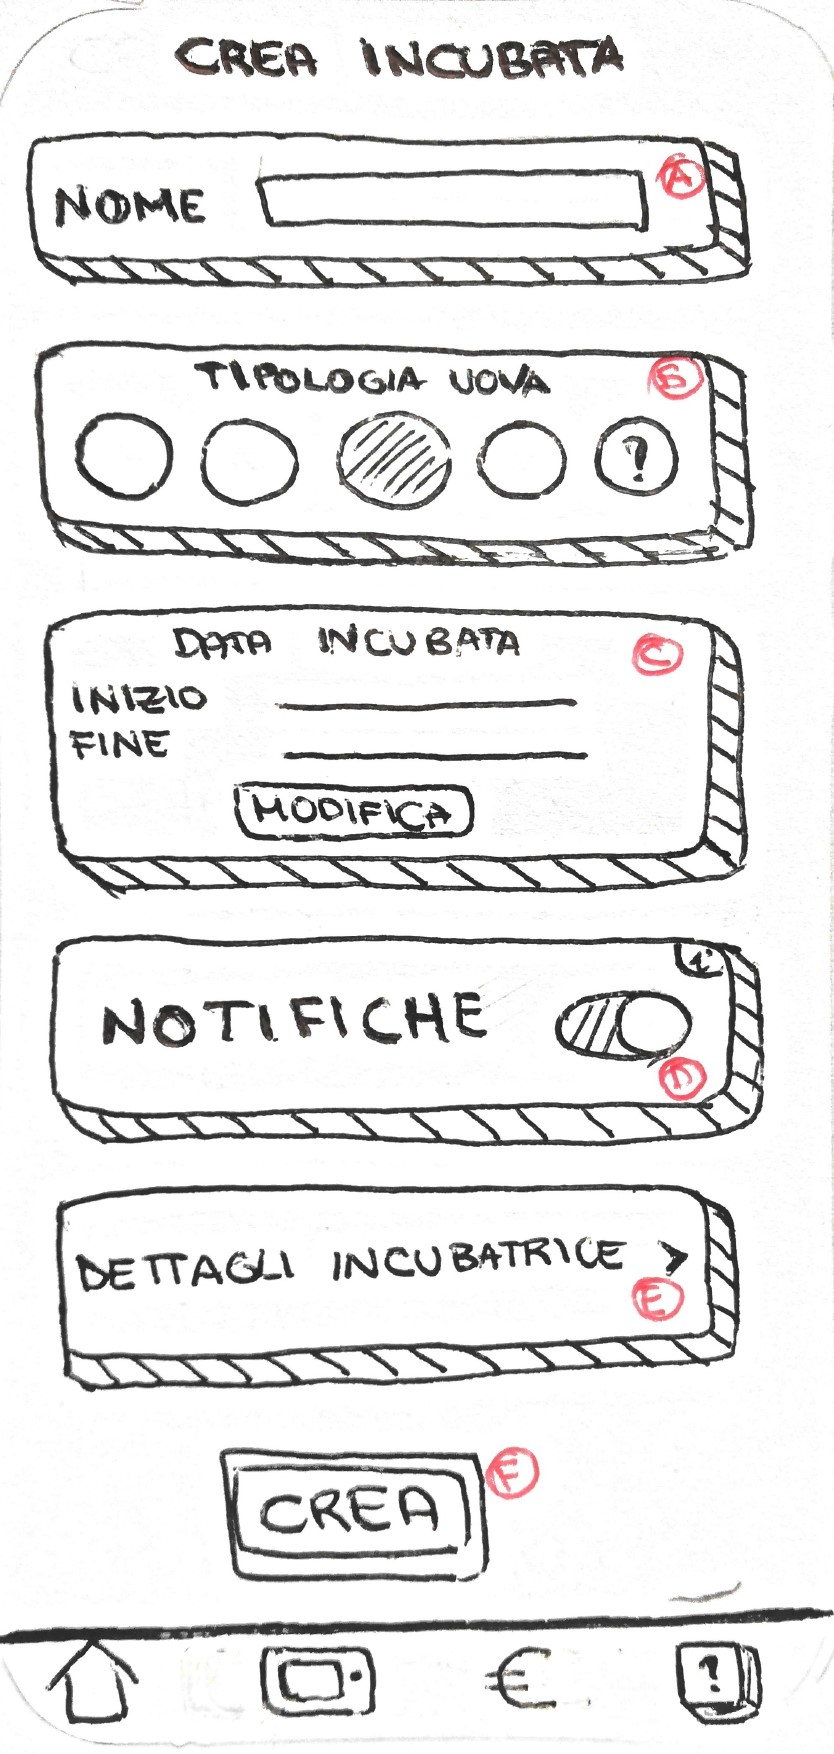 CREA INCUBATA
NOME
A
TIPOLOGIA UOVA
B
?
DATA INCUBATA
C
INIZIO
FINE
MODIFICA
i
NOTIFICHE
D
DETTAGLI INCUBATRICE >
E
CREA
F
€
?